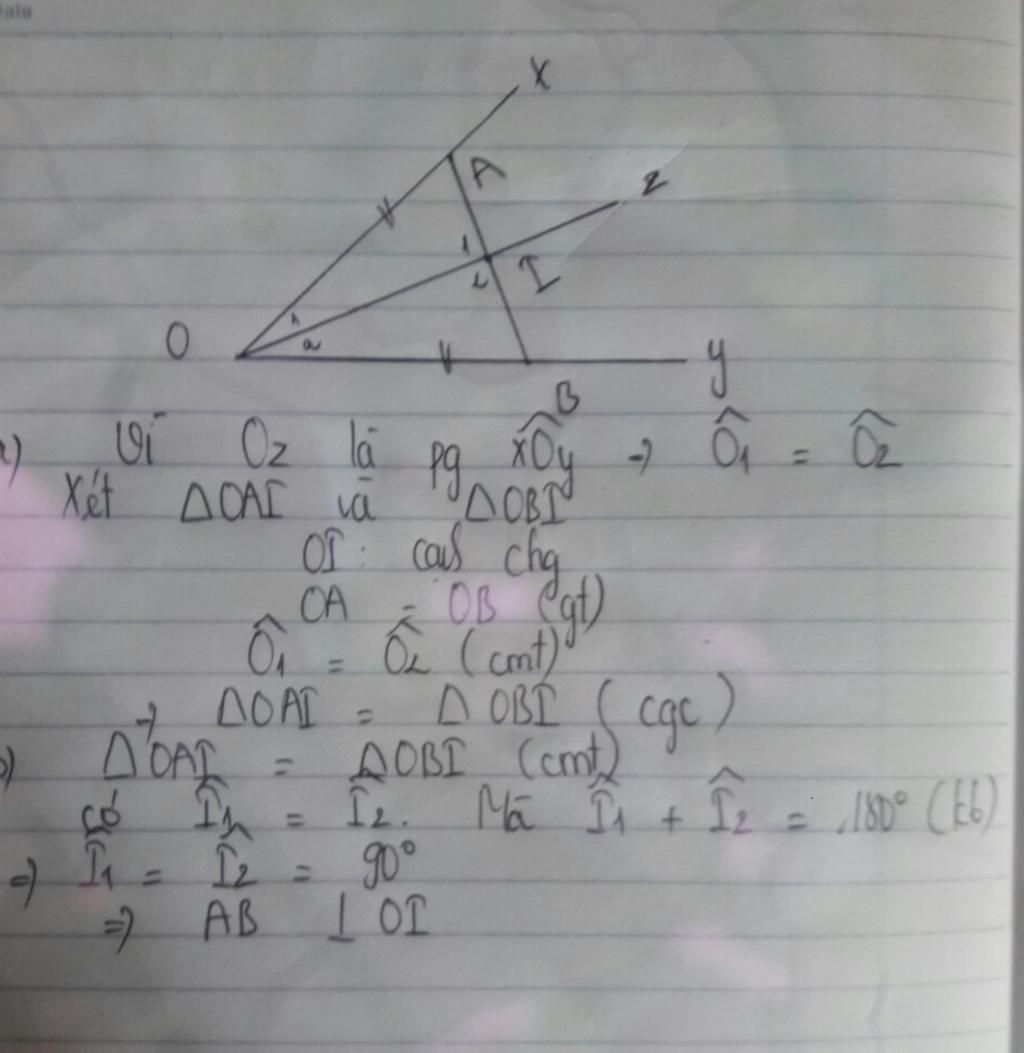 Date
x
A
z
1
2
I
1
2
O
y
B
a) Vì Oz là pg xÔy → Ô1 = Ô2
Xét ΔOAI và ΔOBI
OI: chg
OA = OB (gt)
Ô1 = Ô2 (cmt)
→ ΔOAI = ΔOBI (cgc)
b) ΔOAI = ΔOBI (cmt)
có Î1 = Î2. Mà Î1 + Î2 = 180° (kb)
⇒ Î1 = Î2 = 90°
⇒ AB ⊥ OI